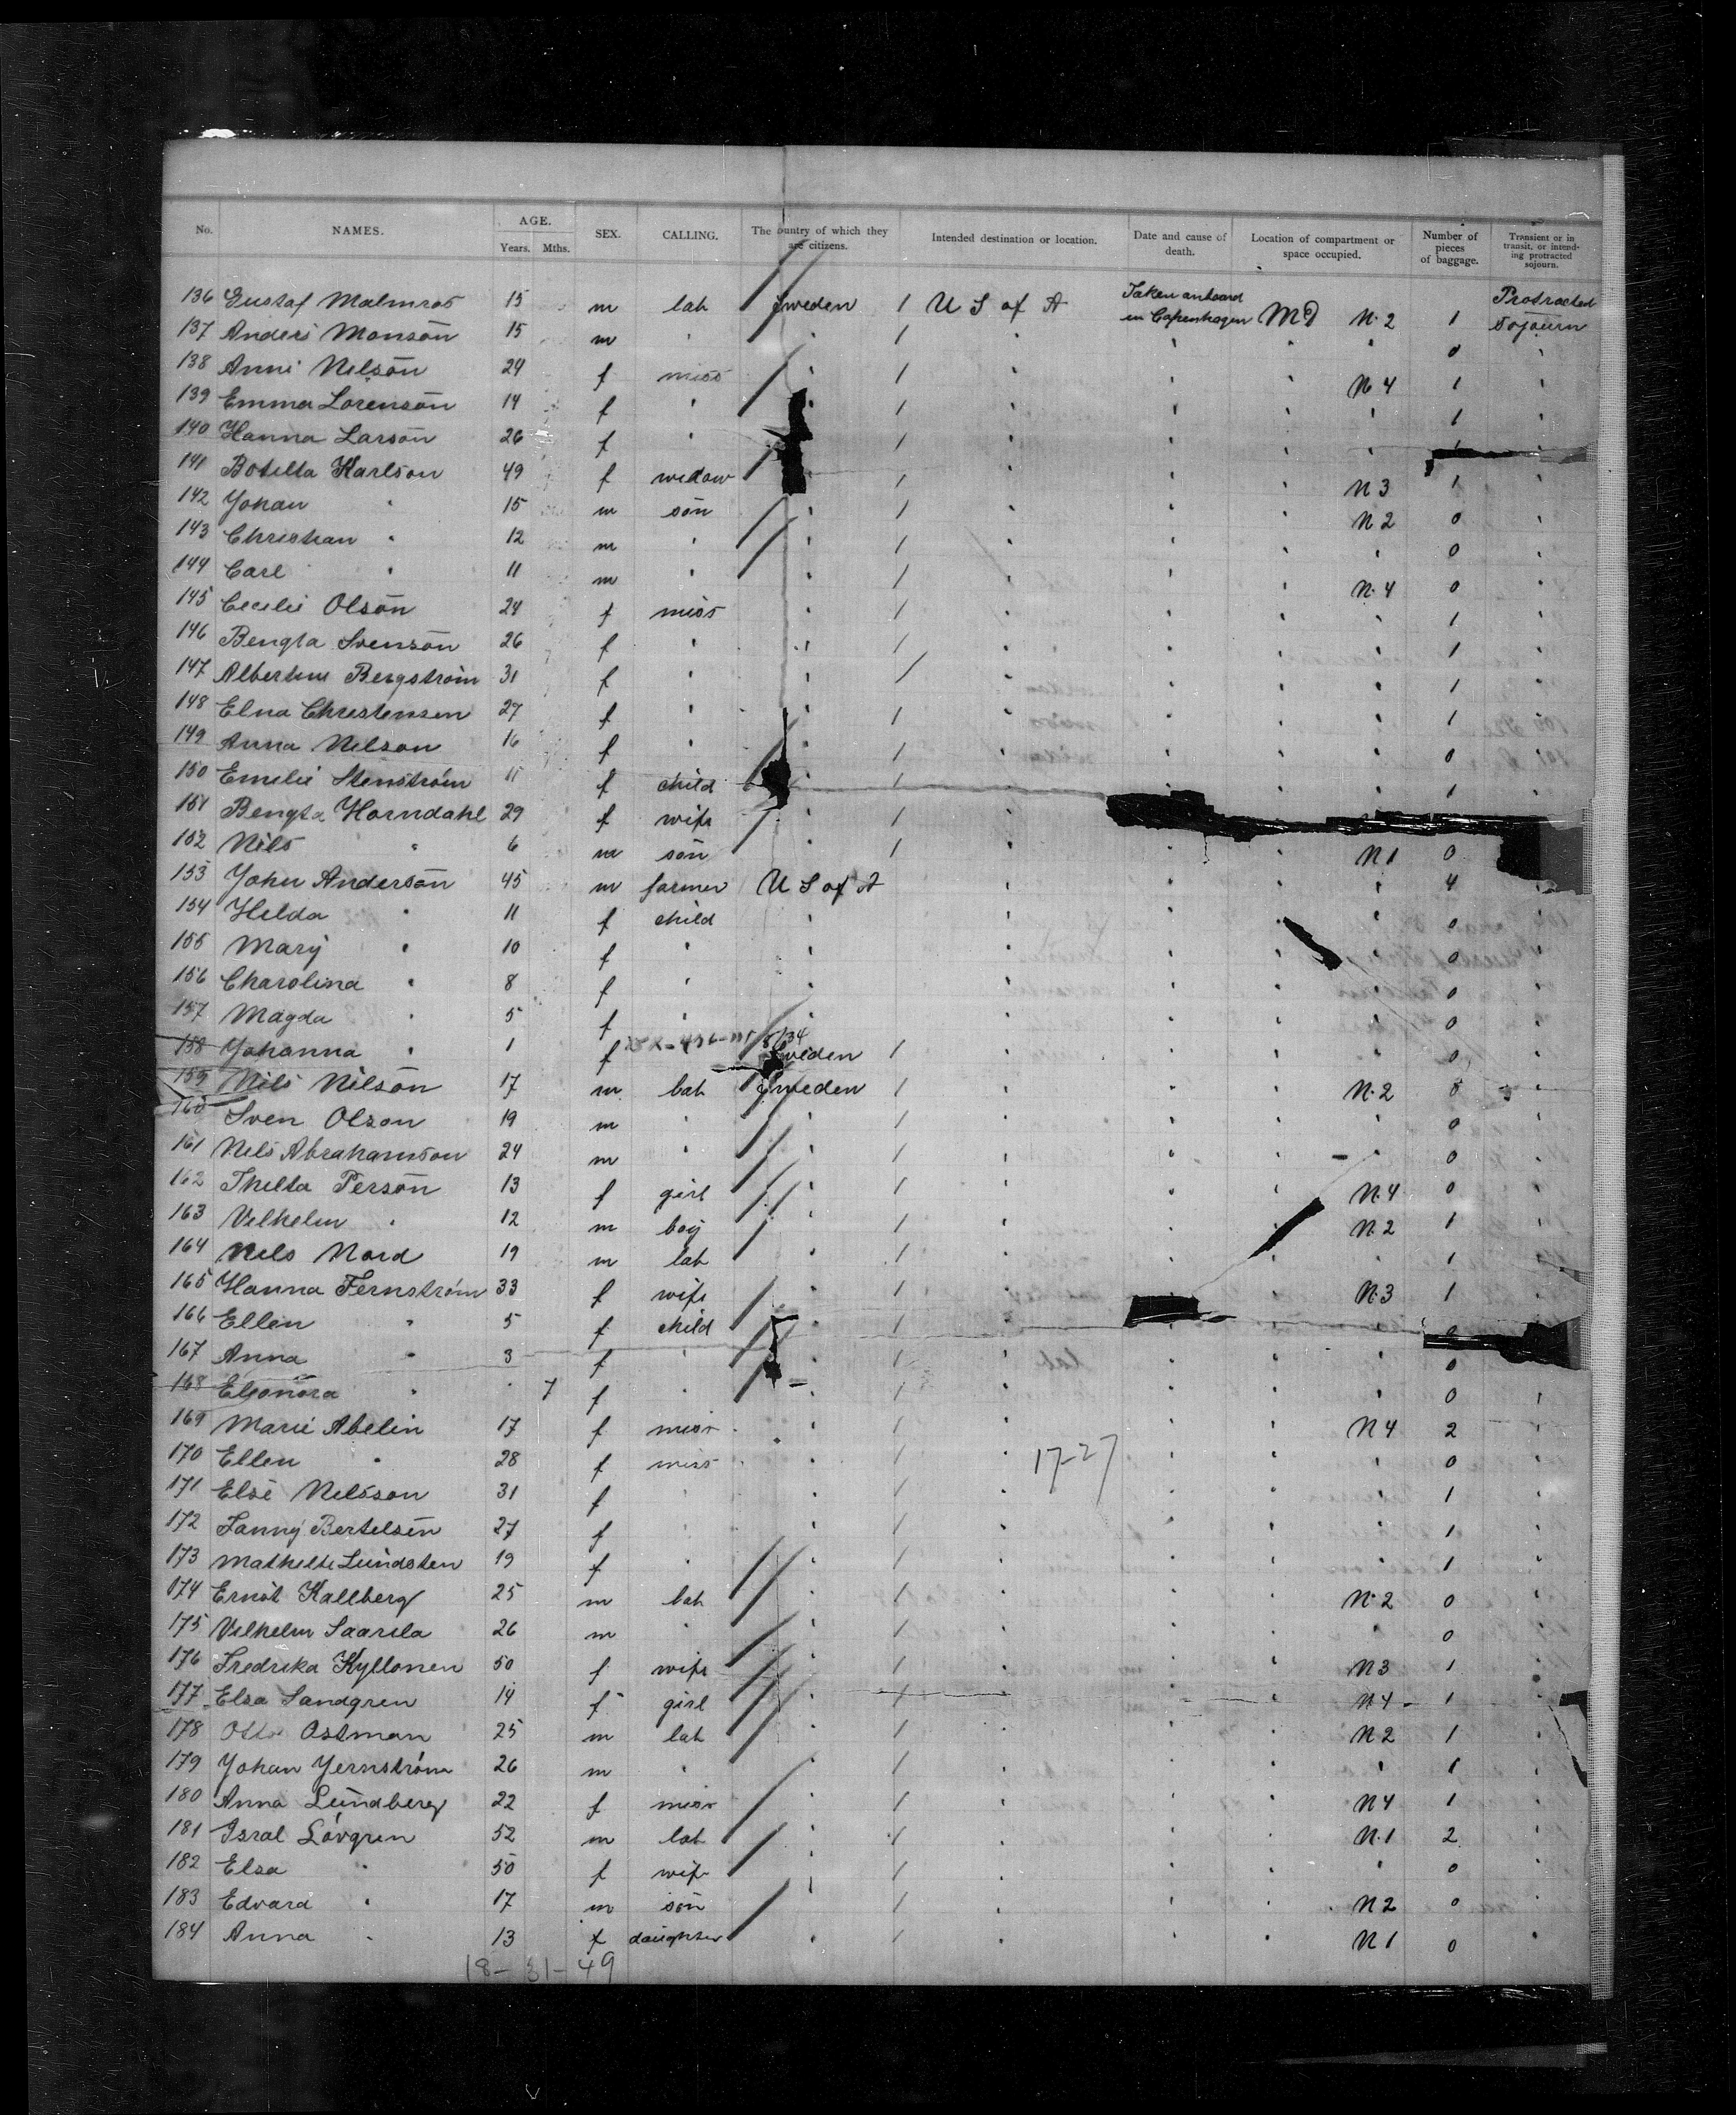 No. NAMES. AGE. Years. Mths. SEX. CALLING. The ountry of which they are citizens. Intended destination or location. Date and cause of death. Location of compartment or space occupied. Number of pieces of baggage. Transient or in transit, or intending protracted sojourn.
136 Gustaf Malmros 15 m lab Sweden 1 U S of A Taken onboard in Copenhagen Md N. 2 1 Protracted Sojourn
137 Anders Monsón 15 m " " 1 " " " " 0 "
138 Anni Nilsón 24 f miss " 1 " " " N 4 1 "
139 Emma Lorensón 14 f " " 1 " " " " 1 "
140 Hanna Larsón 26 f " 1 " " " "
141 Botilla Karlson 49 f widow " 1 " " " N 3 1 "
142 Johan " 15 m son " 1 " " " N 2 0 "
143 Christian " 12 m " " 1 " " " " 0 "
144 Carl " 11 m " " 1 " " " N. 4 0 "
145 Cecilie Olsón 24 f miss " 1 " " " " 1 "
146 Bengta Svensón 26 f " " 1 " " " " 1 "
147 Bergström 31 f " " 1 " " " " 1 "
148 Elna Christensen 27 f " " 1 " " " " 1 "
149 Anna Nilson 16 f " " 1 " " " " 0 "
150 Emilie Stenström 11 f child " 1 " " " " 1 "
151 Bengta Horndahl 29 f wife " 1 "
152 Nils " 6 m son " 1 " " " N 1 0
153 John Andersón 45 m farmer U S of A " " " " 4 "
154 Hilda " 11 f child " " " " " 0 "
155 Mary " 10 f " " " " " 0 "
156 Charolina " 8 f " " " " " " 0 "
157 Magda " 5 f " " " " " " 0 "
158 Johanna " 1 f Sweden 1 " " " " 0 "
159 Nils Nilsón 17 m lab Sweden 1 " " " N. 2 0 "
160 Sven Olson 19 m " " 1 " " " " 0 "
161 Nils Abrahamson 24 m " " 1 " " " " 0 "
162 Thilta Persón 13 f girl " 1 " " " N. 4 0 "
163 Vilhelm " 12 m boy " 1 " " " N. 2 1 "
164 Nils Nord 19 m lab " 1 " " " " 1 "
165 Hanna Fernström 33 f wife " 1 " " " N. 3 1 "
166 Ellen " 5 f child " 1 " " " " 0
167 Anna " 3 f " " 1 " " " " 0
168 Eleonora " 7 f " " 1 " " " " 0 "
169 Marie Abelin 17 f miss " 1 " " " N 4 2 "
170 Ellen " 28 f miss " 1 " 17-27 " " " 0 "
171 Else Nilsson 31 f " " 1 " " " " 1 "
172 Fanny Bertelsen 27 f " " 1 " " " " 1 "
173 Mathilde Lundsten 19 f " " 1 " " " " 1 "
174 Ernst Kallberg 25 m lab " 1 " " " N. 2 0 "
175 Vilhelm Saarila 26 m " " 1 " " " " 0 "
176 Fredrika Kyllonen 50 f wife " 1 " " " N 3 1 "
177 Elsa Sandgren 14 f girl " 1 " " " N 4 1 "
178 Otto Ostman 25 m lab " 1 " " " N 2 1 "
179 Johan Jernström 26 m " " 1 " " " " 1 "
180 Anna Lundberg 22 f miss " 1 " " " N 4 1 "
181 Isral Lövgren 52 m lab " 1 " " " N. 1 2 "
182 Elsa " 50 f wife " 1 " " " " 0 "
183 Edvard " 17 m son " 1 " " " N 2 0 "
184 Anna " 13 f daughter " 1 " " " N 1 0 "
18-31-49